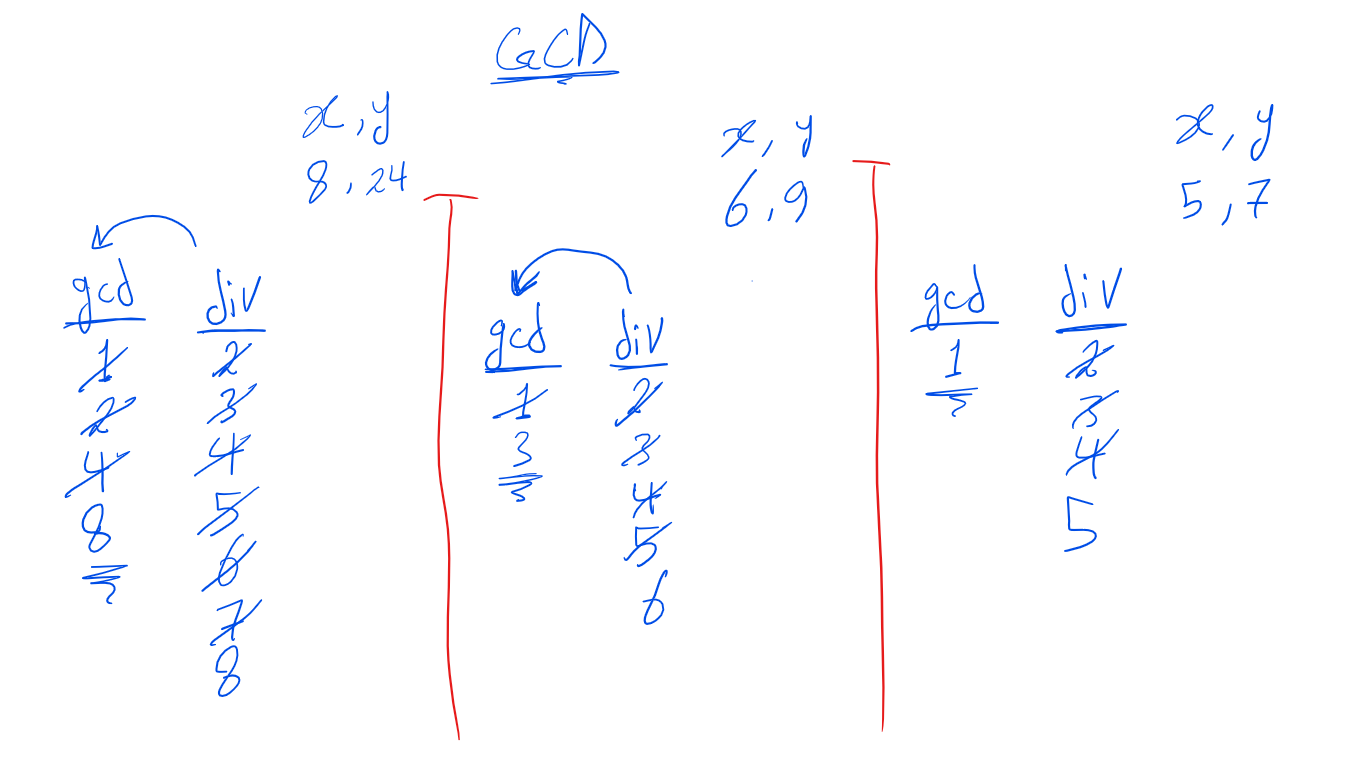 GCD
x, y
8, 24
gcd div
1 2
2 3
4 4
8 5
6
7
8
x, y
6, 9
gcd div
1 2
3 3
4
5
6
x, y
5, 7
gcd div
1 2
3
4
5